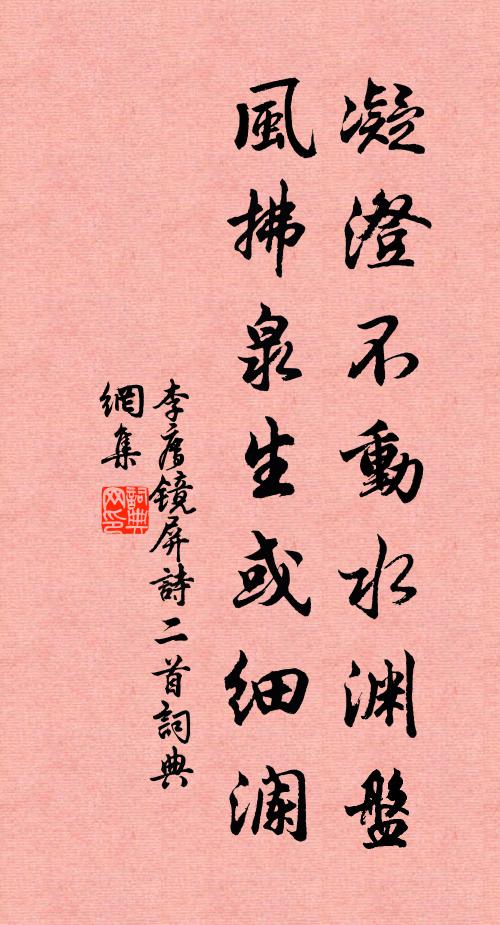 凝澄不動水淵盤
風拂泉生或细瀾
李廌鏡屏詩二首詞典
網集
詞典
网印